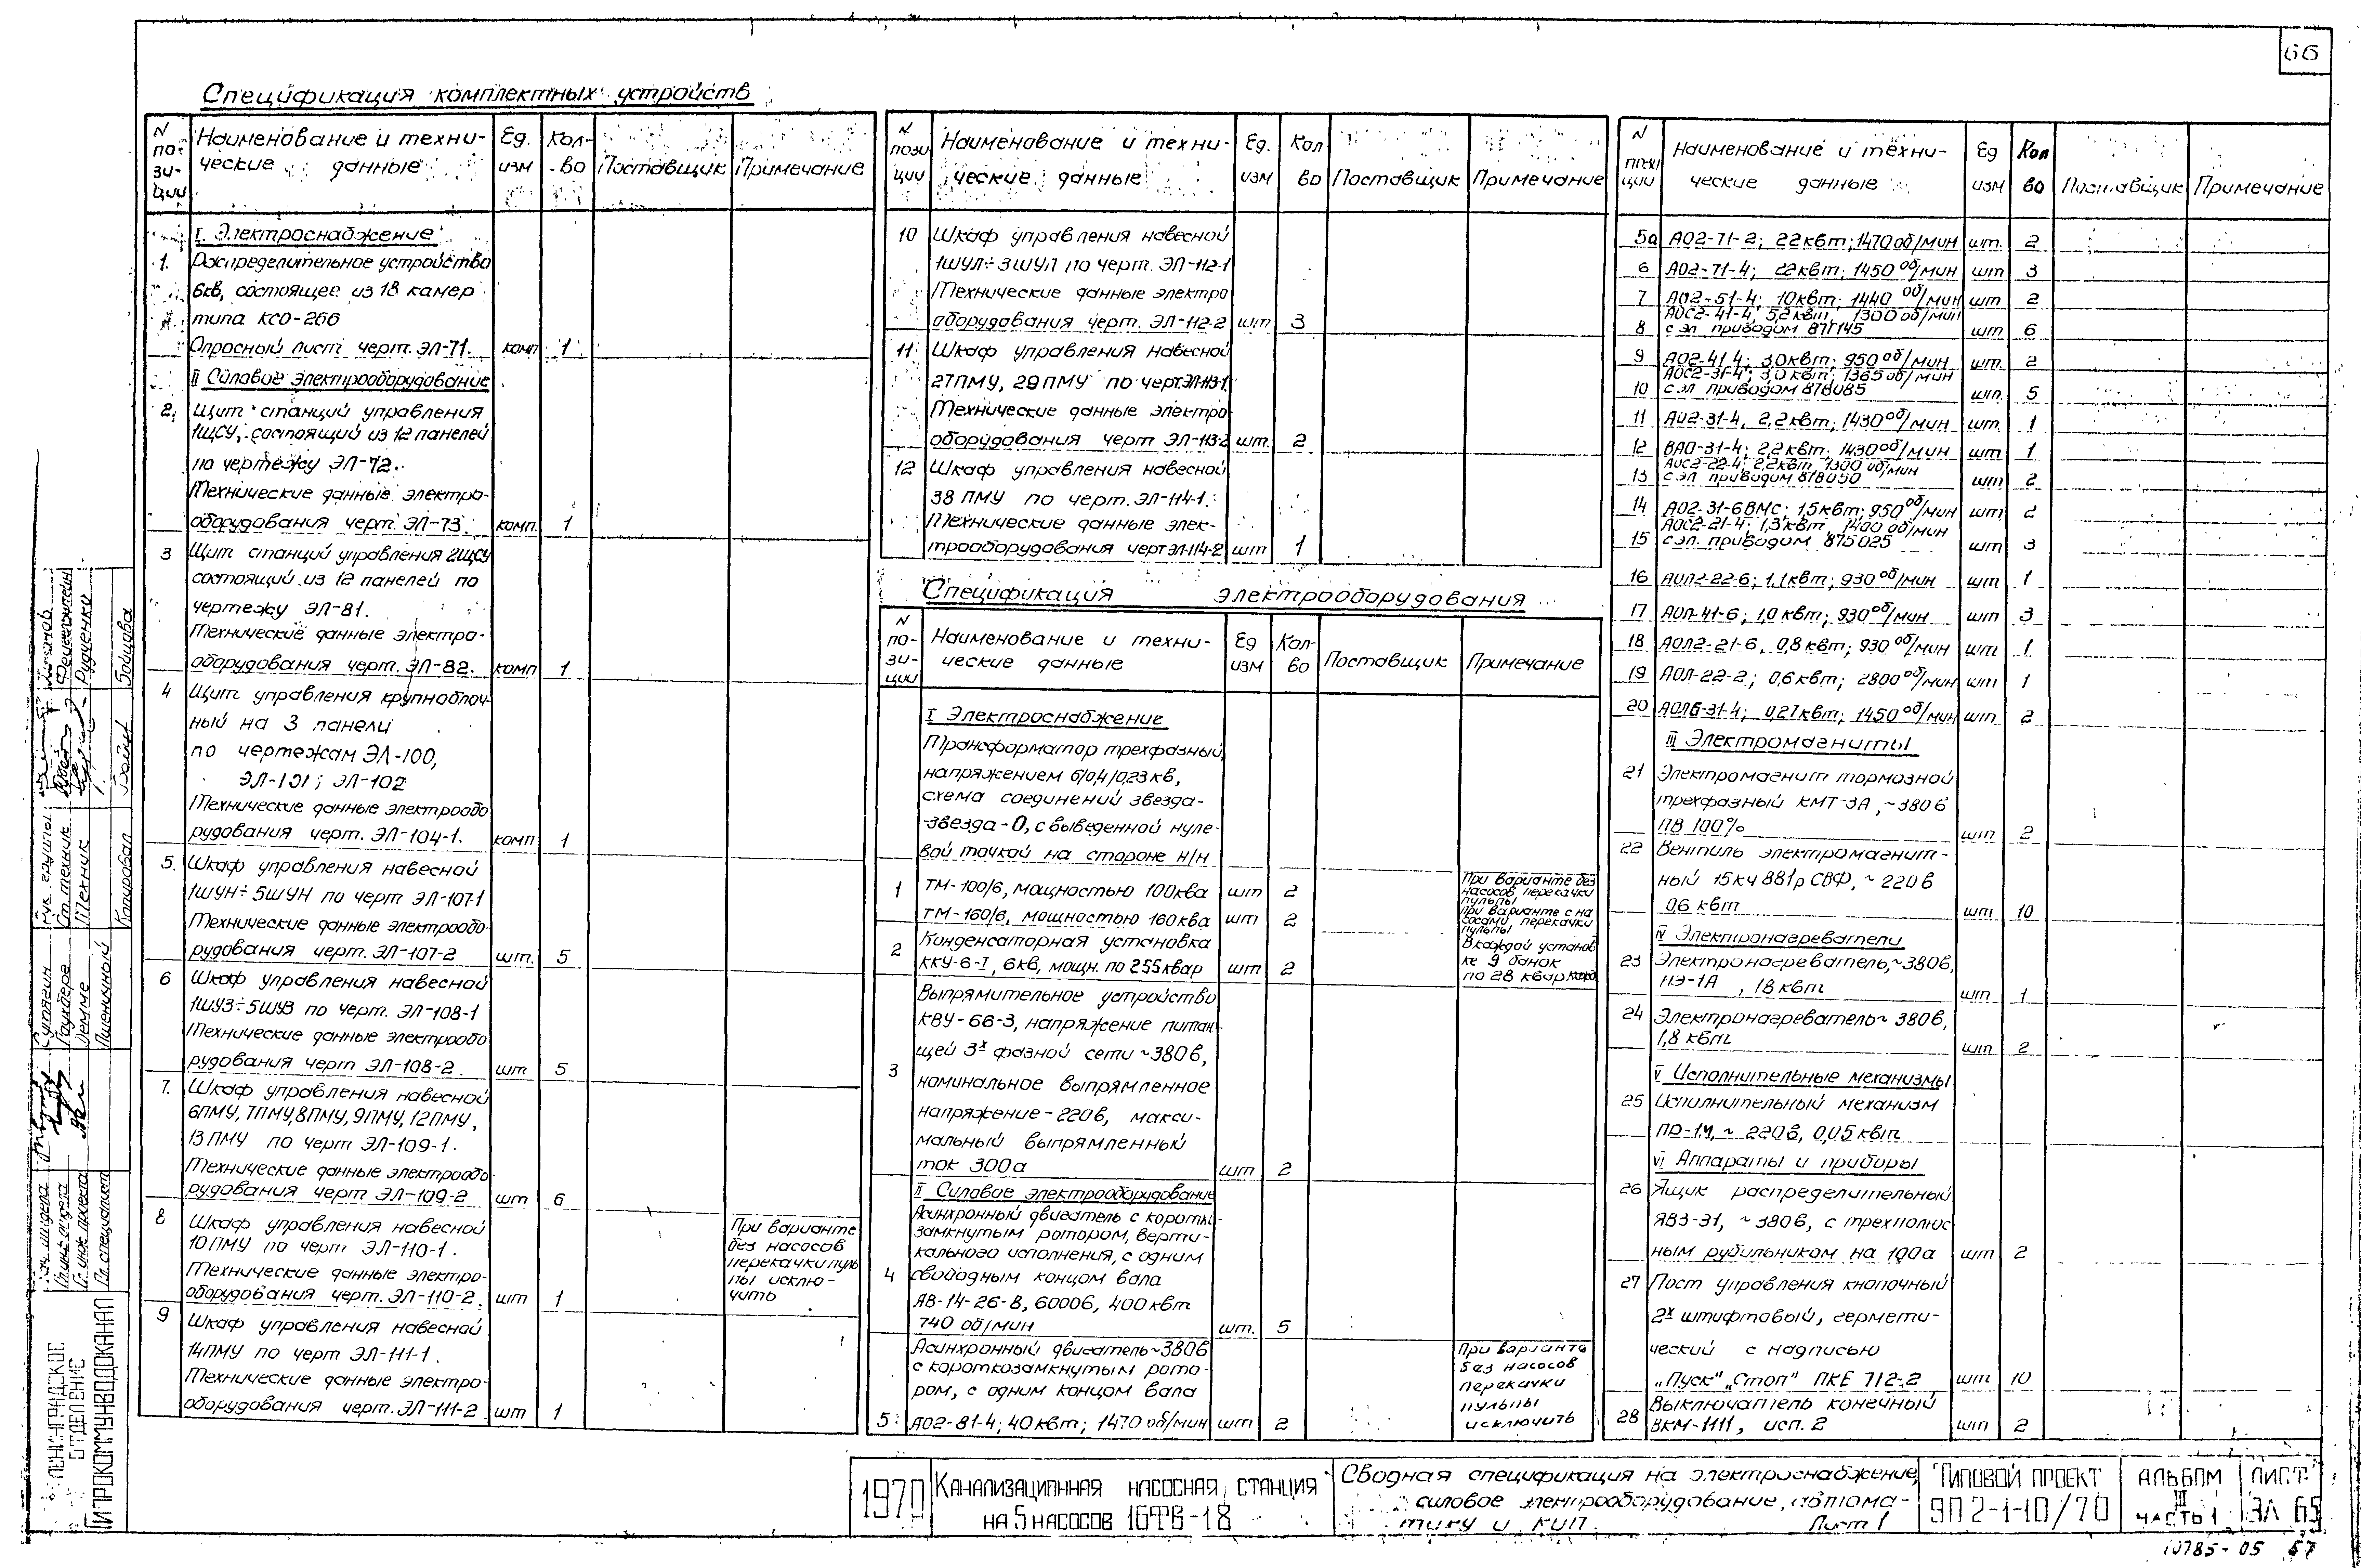 66
Спецификация комплектных устройств
N по-зи-ции
Наименование и техни-ческие данные
Ед. изм
Кол-во
Поставщик
Примечание
I. Электроснабжение
1. Распределительное устройство
6кв, состоящее из 18 камер
типа КСО-266
Опросный лист черт. ЭЛ-71. комп 1
II Силовое электрооборудование
2. Щит станций управления
1ЩСУ, состоящий из 12 панелей
по чертежу ЭЛ-72.
Технические данные электро-
оборудования черт. ЭЛ-73. комп. 1
3 Щит станций управления 2ЩСУ
состоящий из 12 панелей по
чертежу ЭЛ-81.
Технические данные электро-
оборудования черт. ЭЛ-82. комп 1
4 Щит управления крупноблоч-
ный на 3 панели
по чертежам ЭЛ-100,
ЭЛ-101; ЭЛ-102
Технические данные электрообо
рудования черт. ЭЛ-104-1. комп 1
5. Шкаф управления навесной
1ШУН÷5ШУН по черт ЭЛ-107-1
Технические данные электрообо
рудования черт. ЭЛ-107-2 шт. 5
6 Шкаф управления навесной
1ШУЗ÷5ШУЗ по черт. ЭЛ-108-1
Технические данные электрообо
рудования черт ЭЛ-108-2. шт 5
7. Шкаф управления навесной
6ПМУ, 7ПМУ, 8ПМУ, 9ПМУ, 12ПМУ,
13 ПМУ по черт ЭЛ-109-1.
Технические данные электрообо
рудования черт ЭЛ-109-2 шт 6
8 Шкаф управления навесной
10 ПМУ по черт ЭЛ-110-1.
Технические данные электро-
оборудования черт. ЭЛ-110-2. шт 1
При варианте
без насосов
перекачки пуль
пы исклю-
чить
9 Шкаф управления навесной
14ПМУ по черт ЭЛ-111-1.
Технические данные электро
оборудования черт. ЭЛ-111-2 шт 1
N пози ции
Наименование и техни-ческие данные
Ед. изм
Кол во
Поставщик
Примечание
10 Шкаф управления навесной
1ШУЛ÷3ШУЛ по черт. ЭЛ-112-1
Технические данные электро
оборудования черт. ЭЛ-112-2 шт 3
11 Шкаф управления навесной
27ПМУ, 29ПМУ по черт.ЭЛ-113-1
Технические данные электро
оборудования черт ЭЛ-113-2 шт. 2
12 Шкаф управления навесной
38 ПМУ по черт. ЭЛ-114-1.
Технические данные элек-
трооборудования черт ЭЛ-114-2 шт 1
Спецификация электрооборудования
N по-зи-ции
Наименование и техни-ческие данные
Ед изм
Кол-во
Поставщик
Примечание
I Электроснабжение
Трансформатор трехфазный,
напряжением 6/0,4/0,23 кв,
схема соединений звезда-
-звезда-0, с выведенной нуле-
вой точкой на стороне н/н
1 ТМ-100/6, мощностью 100ква шт 2
При варианте без
насосов перекачки
пульпы
ТМ-160/6, мощностью 160ква шт 2
При варианте с на
сосами перекачки
пульпы
2 Конденсаторная установка
ККУ-6-I, 6кв, мощн. по 255 квар шт 2
В каждой установ
ке 9 банок
по 28 квар
Выпрямительное устройство
КВУ-66-3, напряжение питаю
щей 3х фазной сети ~380в,
3 номинальное выпрямленное
напряжение-220в, макси-
мальный выпрямленный
ток 300а шт 2
II Силовое электрооборудование
Асинхронный двигатель с коротко-
замкнутым ротором, верти-
кального исполнения, с одним
4 свободным концом вала
АВ-14-26-8, 6000в, 400квт
740 об/мин шт. 5
Асинхронный двигатель ~380в
с короткозамкнутым рото-
ром, с одним концом вала
5. АО2-81-4; 40квт; 1470 об/мин шт 2
При варианте
без насосов
перекачки
пульпы
исключить
N пози ции
Наименование и техни-ческие данные
Ед изм
Кол во
Поставщик
Примечание
5а АО2-71-2; 22квт; 1470об/мин шт. 2
6 АО2-71-4; 22квт; 1450об/мин шт 3
7 АО2-51-4; 10квт; 1440 об/мин шт 2
АОС2-41-4, 5,2 квт, 1300 об/мин
8 с эл приводом 87Г145 шт 6
9 АО2-41 4; 3,0квт; 950об/мин шт. 2
АОС2-31-4; 3,0 квт; 1365об/мин
10 с эл приводом 87В085 шт. 5
11 АО2-31-4, 2,2квт; 1430об/мин шт. 1
12 ВАО-31-4; 2,2квт; 1430об/мин шт 1
АОС2-22-4; 2,2квт, 1300 об/мин
13 с эл приводом 87В050 шт 2
14 АО2-31-6ВМС; 1,5квт; 950об/мин шт 2
АОС2-21-4; 1,3квт, 1400 об/мин
15 с эл. приводом 87Б025 шт 3
16 АОЛ2-22-6; 1,1квт; 930об/мин шт 1
17 АОЛ-41-6; 1,0 квт; 930об/мин шт 3
18 АОЛ2-21-6, 0,8квт; 930об/мин шт 1
19 АОЛ-22-2; 0,6квт; 2800об/мин шт 1
20 АОЛБ-31-4; 0,27квт; 1450об/мин шт 2
III Электромагниты
21 Электромагнит тормозной
трехфазный КМТ-3А, ~380в
ПВ 100% шт 2
22 Вентиль электромагнит-
ный 15кч 881р СВФ, ~ 220в
0,6 квт шт 10
IV Электронагреватели
23 Электронагреватель, ~380в,
НЭ-1А, 18квт шт 1
24 Электронагреватель ~ 380в,
1,8 квт шт 2
V Исполнительные механизмы
25 Исполнительный механизм
ПР-1М, ~ 220в, 0,05квт
VI Аппараты и приборы
26 Ящик распределительный
ЯВЗ-31, ~380в, с трехполюс
ным рубильником на 100а шт 2
27 Пост управления кнопочный
2х штифтовый, гермети-
ческий с надписью
„Пуск" „Стоп" ПКЕ 712-2 шт 10
28 Выключатель конечный
ВКМ-1111, исп. 2 шт 2
1970
Канализационная насосная станция
на 5 насосов 16ФВ-18
Сводная спецификация на электроснабжение,
силовое электрооборудование, автома-
тику и КИП. Лист 1
Типовой проект
902-1-10/70
Альбом III часть 1
Лист ЭЛ 65
10785-05 67
ЛЕНИНГРАДСКОЕ
ОТДЕЛЕНИЕ
ГИПРОКОММУНВОДОКАНАЛ
Нач. отдела Сутягин
Гл. инж. отдела
Гл. инж. проекта Лемме
Гл. специалист Пшеничный
Рук. группы
Ст. техник
Техник Рудченко
Копировал Бойцова